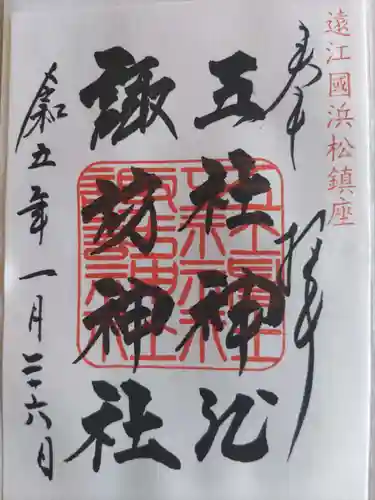 遠江國浜松鎮座
奉拝
五社神社
諏訪神社
令和五年一月二十六日